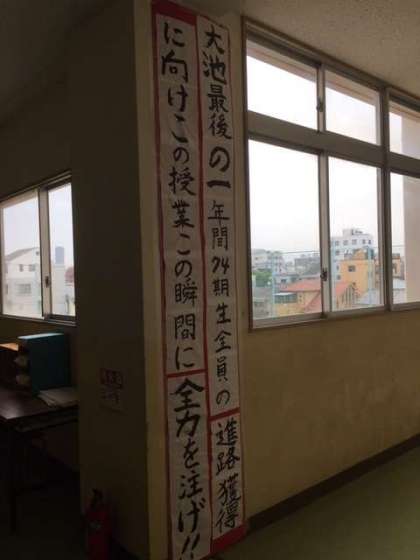 大池最後の一年間74期生全員の進路獲得
に向けこの授業この瞬間に全力を注げ!!